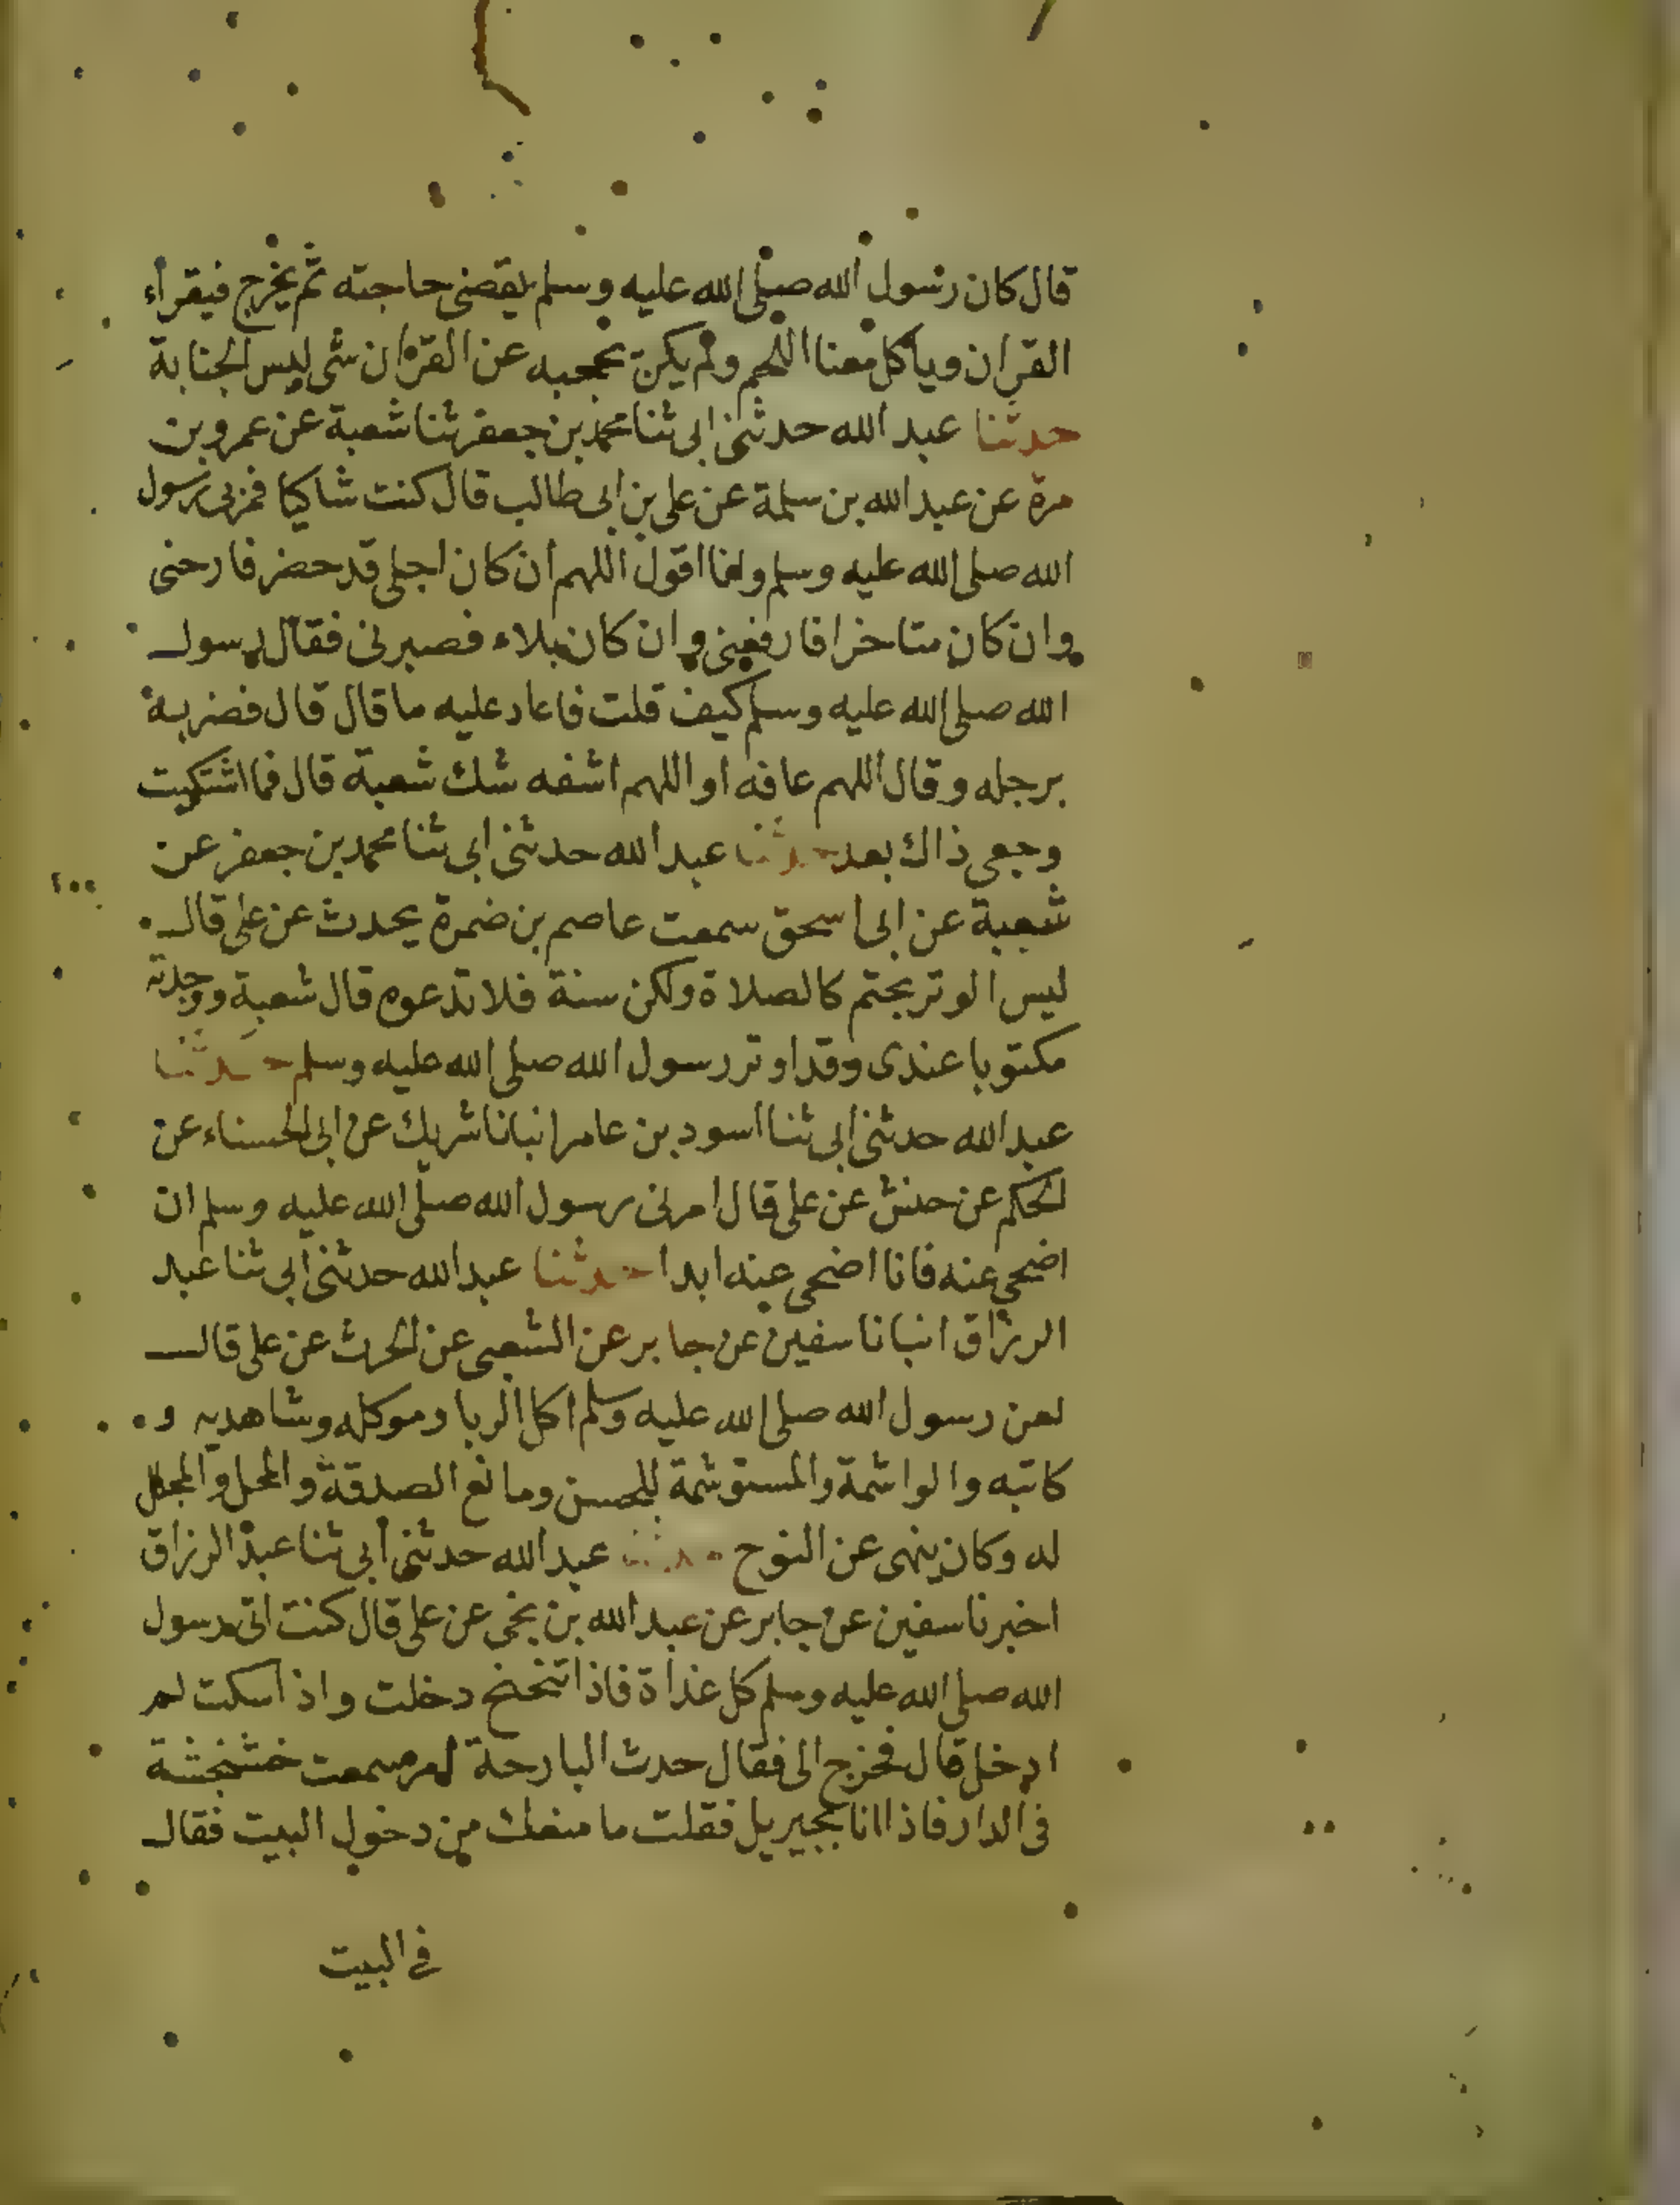 قال كان رسول الله صلى الله عليه وسلم يقضى حاجته ثم يخرج فيقراء
القران وياكل معنا اللحم ولم يكن يحجبه عن القران شى ليس الجنابة
حدثنا عبد الله حدثنى ابى ثنا محمد بن جعفر ثنا شعبة عن عمرو بن
مرة عن عبد الله بن سلمة عن على بن ابى طالب قال كنت شاكيا فمر بى رسول
الله صلى الله عليه وسلم وانا اقول اللهم ان كان اجلى قد حضر فارحنى
وان كان متاخرا فارفعنى وان كان بلاء فصبرنى فقال رسول
الله صلى الله عليه وسلم كيف قلت فاعاد عليه ما قال قال فضربه
برجله وقال اللهم عافه او اللهم اشفه شك شعبة قال فما اشتكيت
وجعى ذاك بعد حدثنا عبد الله حدثنى ابى ثنا محمد بن جعفر عن
شعبة عن ابى اسحق سمعت عاصم بن ضمرة يحدث عن على قال
ليس الوتر بحتم كالصلاة ولكن سنة فلا تدعوه قال شعبة ووجدته
مكتوبا عندى وقد اوتر رسول الله صلى الله عليه وسلم حدثنا
عبد الله حدثنى ابى ثنا اسود بن عامر انبانا شريك عن ابى الحسناء عن
الحكم عن حنش عن على قال امرنى رسول الله صلى الله عليه وسلم ان
اضحى عنه فانا اضحى عنه ابدا حدثنا عبد الله حدثنى ابى ثنا عبد
الرزاق انبانا سفين عن جابر عن الشعبى عن الحرث عن على قال
لعن رسول الله صلى الله عليه وسلم اكل الربا وموكله وشاهديه و
كاتبه والواشمة والمستوشمة للحسن ومانع الصدقة والمحل والمحلل
له وكان ينهى عن النوح حدثنا عبد الله حدثنى أبى ثنا عبد الرزاق
اخبرنا سفين عن جابر عن عبد الله بن نجى عن على قال كنت اتى رسول
الله صلى الله عليه وسلم كل غداة فاذا تنحنح دخلت واذا سكت لم
ادخل قال فخرج الى فقال حدث البارحة امر سمعت خشخشة
فى الدار فاذا انا بجبريل فقلت ما منعك من دخول البيت فقال
فى البيت